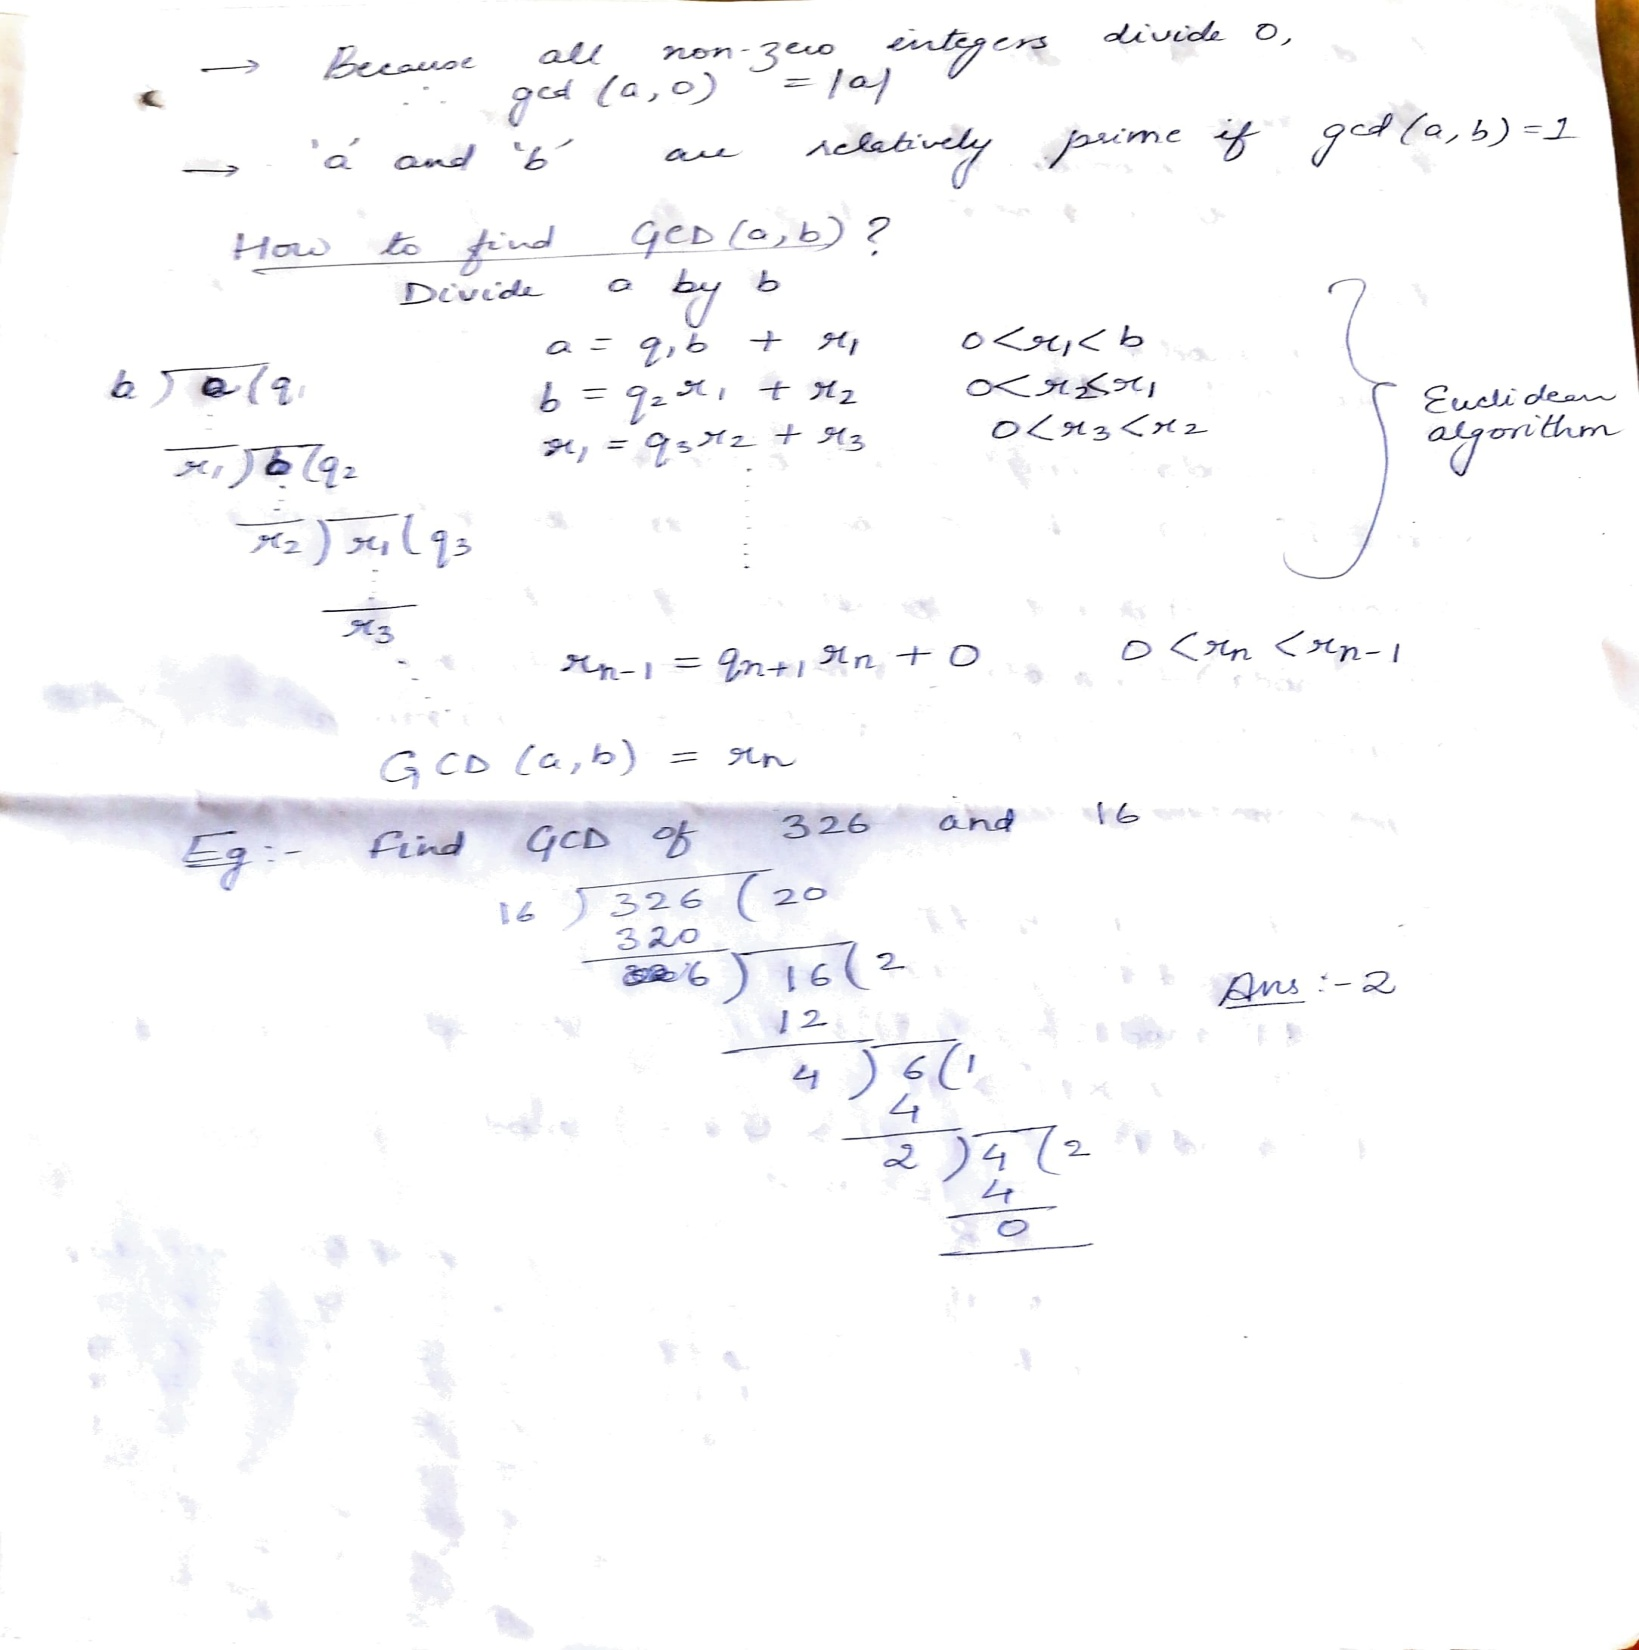 → Because all non-zero integers divide 0,
∴ gcd (a, 0) = |a|
→ 'a' and 'b' are relatively prime if gcd (a, b) = 1
How to find GCD (a, b) ?
Divide a by b
a = q₁b + r₁ 0 < r₁ < b
b = q₂r₁ + r₂ 0 < r₂ < r₁
r₁ = q₃r₂ + r₃ 0 < r₃ < r₂
Euclidean
algorithm
b ) a ( q₁
r₁ ) b ( q₂
r₂ ) r₁ ( q₃
r₃
rₙ₋₁ = qₙ₊₁ rₙ + 0 0 < rₙ < rₙ₋₁
GCD (a, b) = rₙ
Eg :- Find GCD of 326 and 16
16 ) 326 ( 20
320
6 ) 16 ( 2
Ans :- 2
12
4 ) 6 ( 1
4
2 ) 4 ( 2
4
0